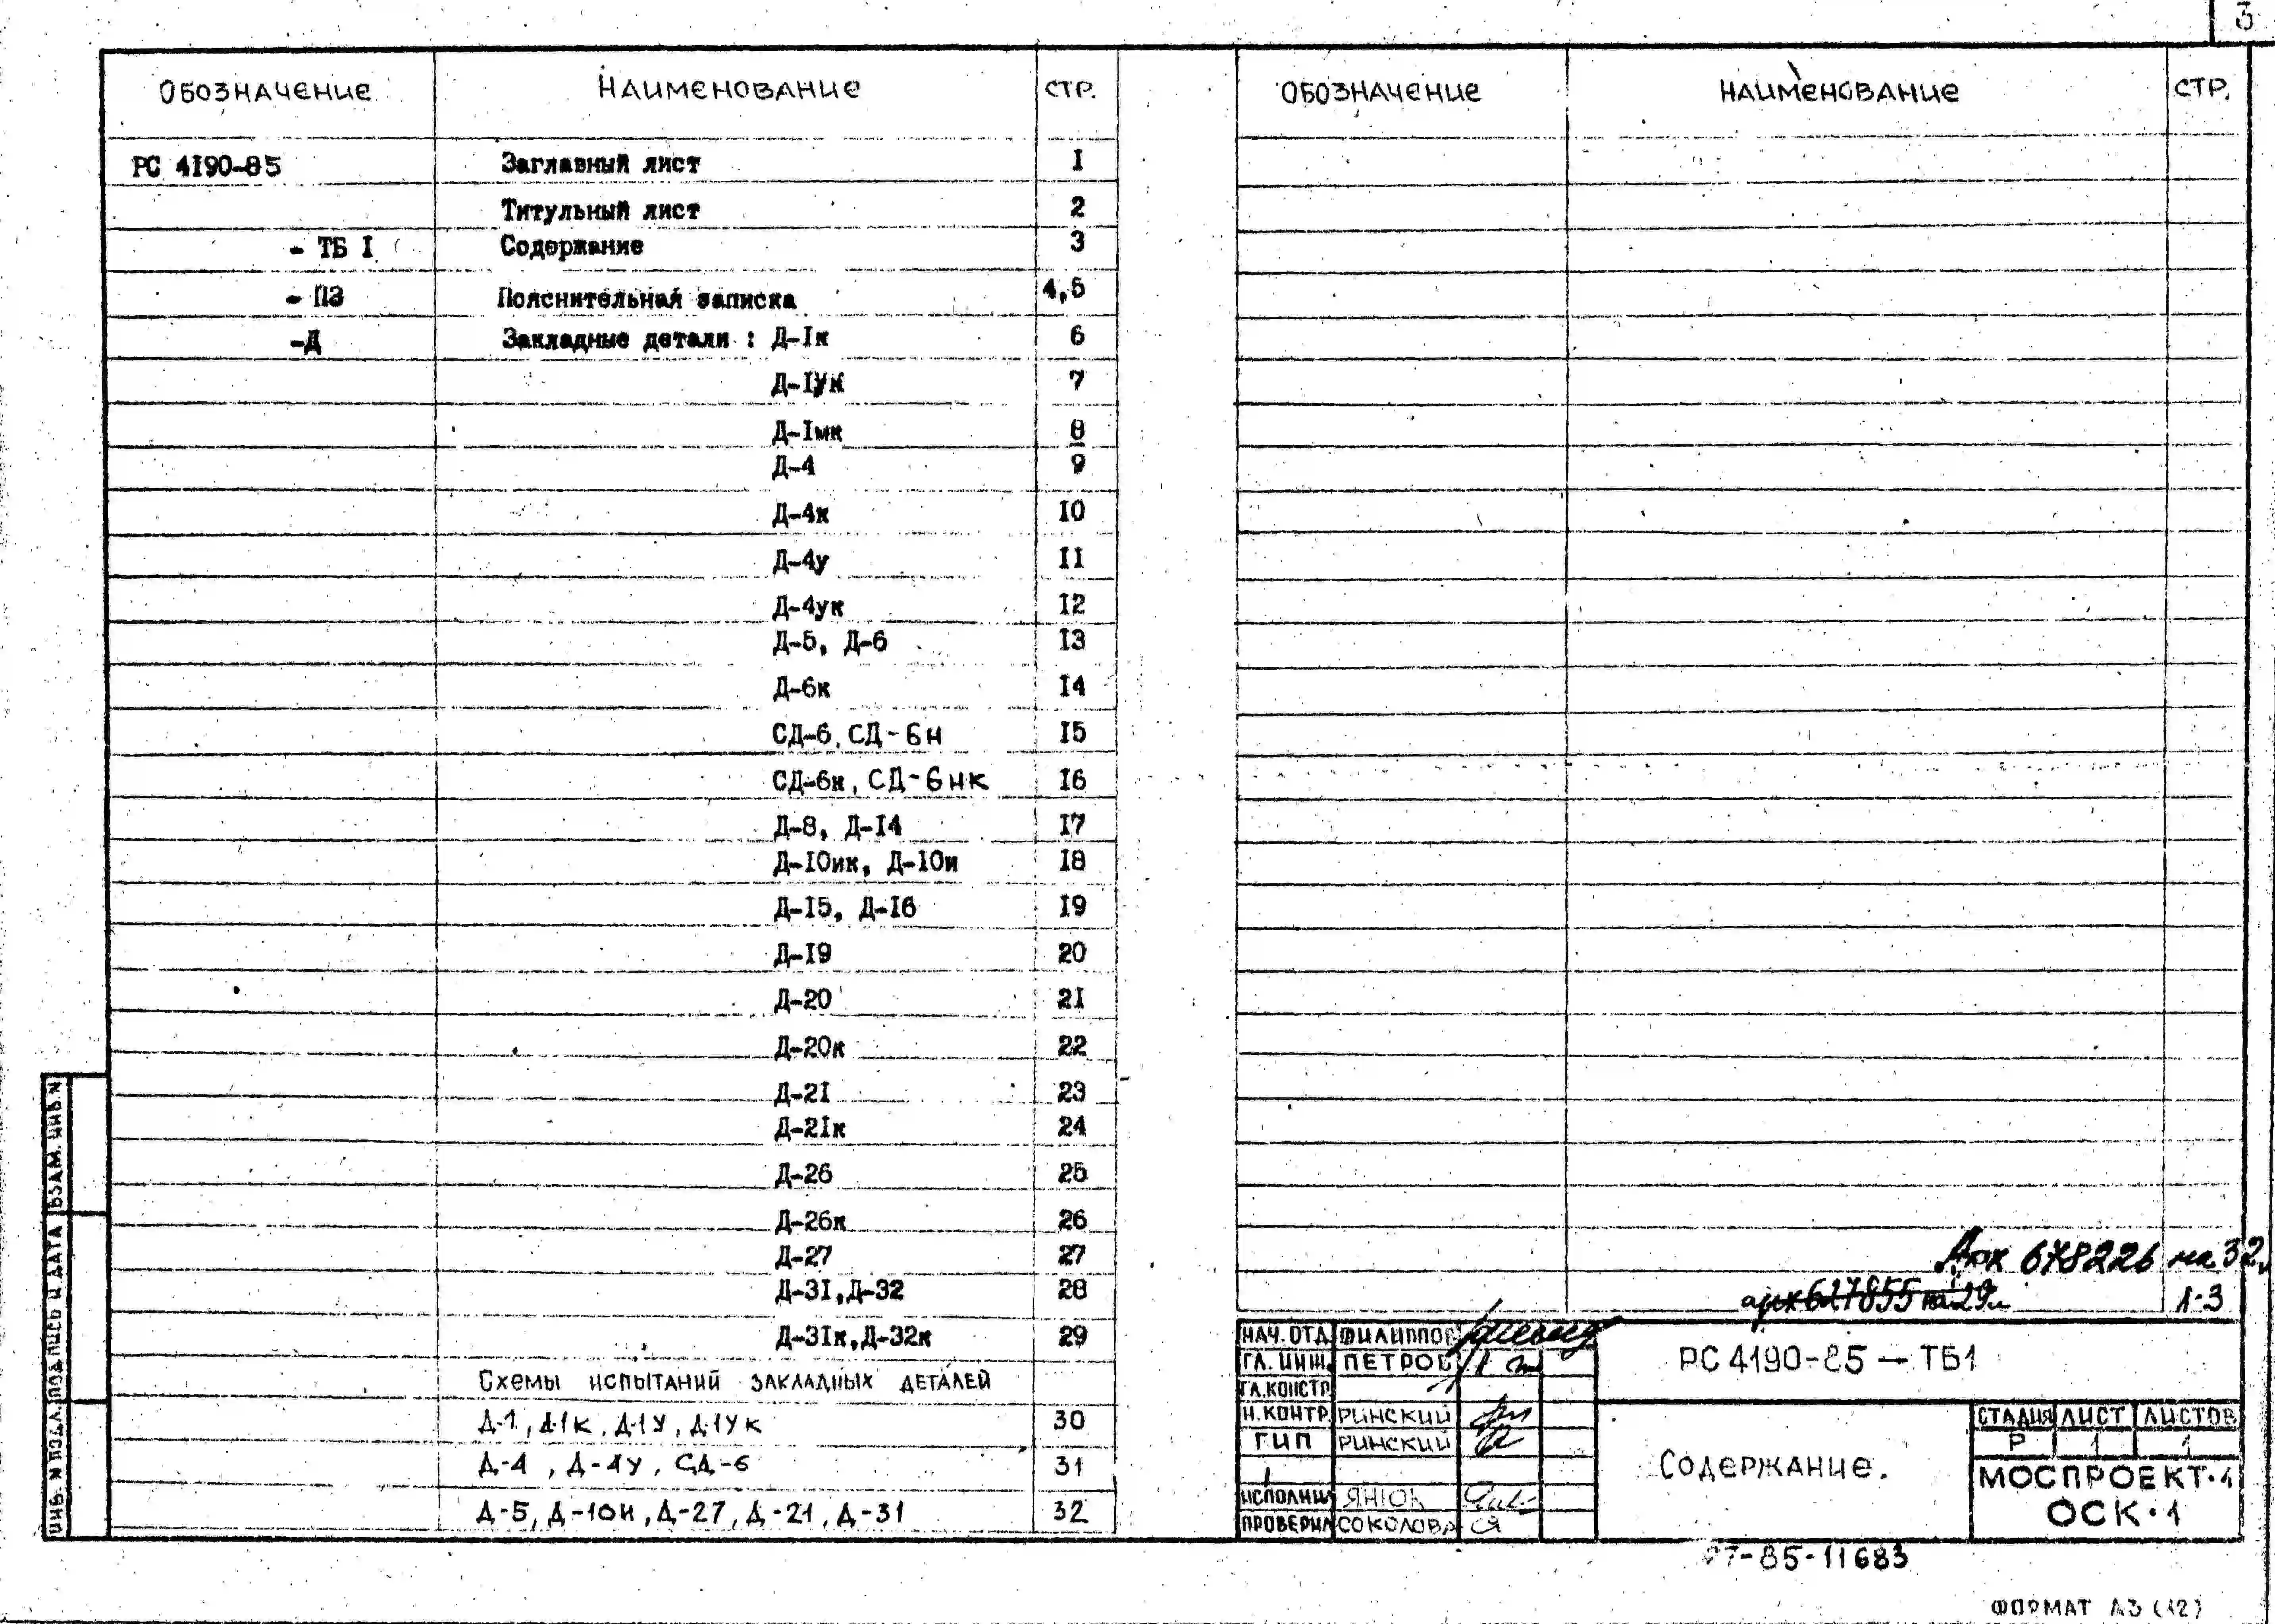 3
ОБОЗНАЧЕНИЕ НАИМЕНОВАНИЕ СТР.
РС 4190-85 Заглавный лист I
Титульный лист 2
- ТБ I Содержание 3
- ПЗ Пояснительная записка 4,5
-Д Закладные детали : Д-Iк 6
Д-IУК 7
Д-Iмк 8
Д-4 9
Д-4к IO
Д-4у II
Д-4ук I2
Д-5, Д-6 I3
Д-6к I4
СД-6, СД-6Н I5
СД-6к, СД-6НК I6
Д-8, Д-I4 I7
Д-IОик, Д-IОи I8
Д-I5, Д-I6 I9
Д-I9 20
Д-20 2I
Д-20к 22
Д-2I 23
Д-2Iк 24
Д-26 25
Д-26к 26
Д-27 27
Д-3I,Д-32 28
Д-3Iк,Д-32к 29
Схемы испытаний закладных деталей
Д-1, Д-1К, Д-1У, Д-1УК 30
Д-4, Д-4У, СД-6 31
Д-5, Д-10И, Д-27, Д-21, Д-31 32
ОБОЗНАЧЕНИЕ НАИМЕНОВАНИЕ СТР.
Арх 678226 на 32
арх 627855 на 29л
Л-3
НАЧ. ОТД. ФИЛИППОВ
ГЛ. ИНЖ. ПЕТРОВ
ГЛ.КОНСТР.
Н.КОНТР. РИНСКИЙ
ГИП РИНСКИЙ
ИСПОЛНИЛ ЯНЮК
ПРОВЕРИЛ СОКОЛОВА
РС 4190-85 — ТБ1
СОДЕРЖАНИЕ.
СТАДИЯ ЛИСТ ЛИСТОВ
Р 1 1
МОСПРОЕКТ-1
ОСК-1
ИНВ. N ПОДЛ. ПОДПИСЬ И ДАТА ВЗАМ. ИНВ. N
97-85-11683
ФОРМАТ А3 (12)